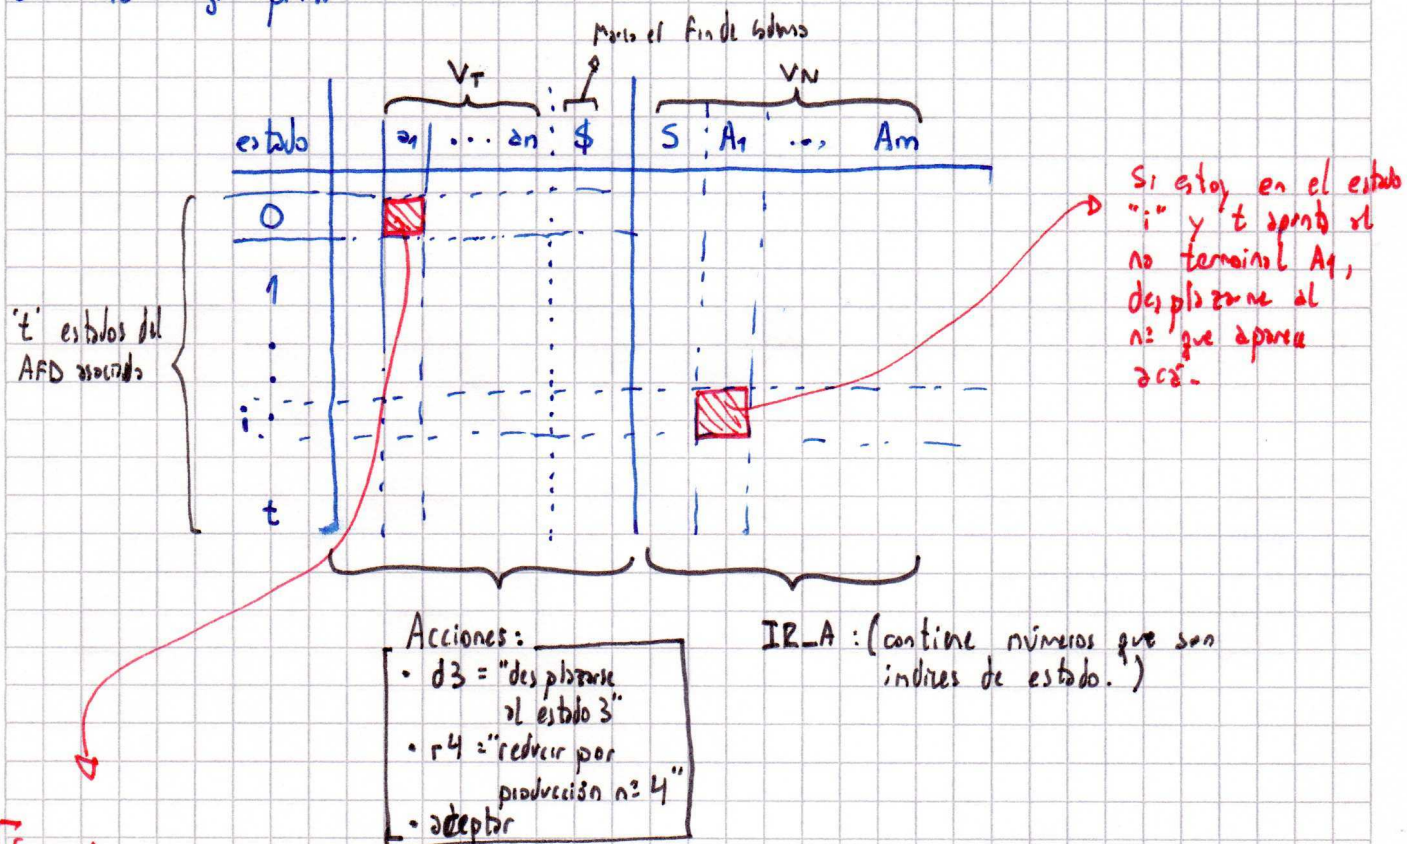 Marca el fin de cadena
VT
VN
estado a1 ... an $ S A1 ..., Am
0
1
i
t
't' estados del
AFD asociado
Si estoy en el estado
"i" y t apunta al
no terminal A1,
desplazarme al
nº que aparece
acá.
Acciones:
• d3 = "desplazarse
al estado 3"
• r4 = "reducir por
producción nº 4"
• aceptar
IR_A : (contiene números que son
índices de estado.)